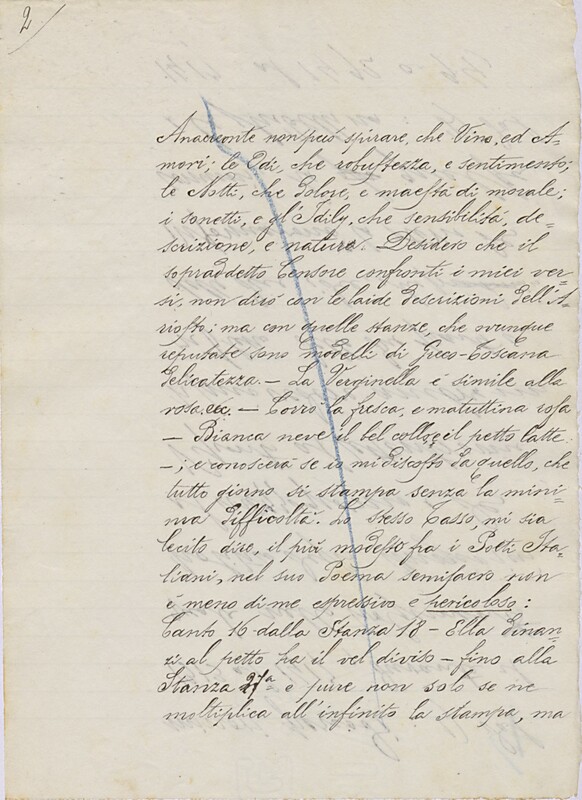 2
Anacreonte non può spirare, che Vino, ed A-
mori; le Odi, che robustezza, e sentimento;
le Notti, che dolore, e maestà di morale;
i sonetti, e gl'Idilj, che sensibilità, de=
scrizione, e natura. Desidero che il
sopraddetto Censore confronti i miei ver-
si, non dirò con le laide descrizioni dell'A-
riosto; ma con quelle stanze, che ovunque
reputate sono modelli di Greco-Toscana
delicatezza. — La Verginella è simile alla
rosa. ec. — Corrò la fresca, e mattutina rosa
— Bianca neve il bel collo, e il petto latte
—; e conoscerà se io mi discosto da quello, che
tutto giorno si stampa senza la mini-
ma difficoltà. Lo stesso Tasso, mi sia
lecito dire, il più modesto fra i Poeti Ita-
liani, nel suo Poema semisacro non
è meno di me espressivo e pericoloso:
Canto 16 dalla Stanza 18 — Ella dinan-
zi al petto ha il vel diviso — fino alla
Stanza 27ª e pure non solo se ne
moltiplica all'infinito la stampa, ma